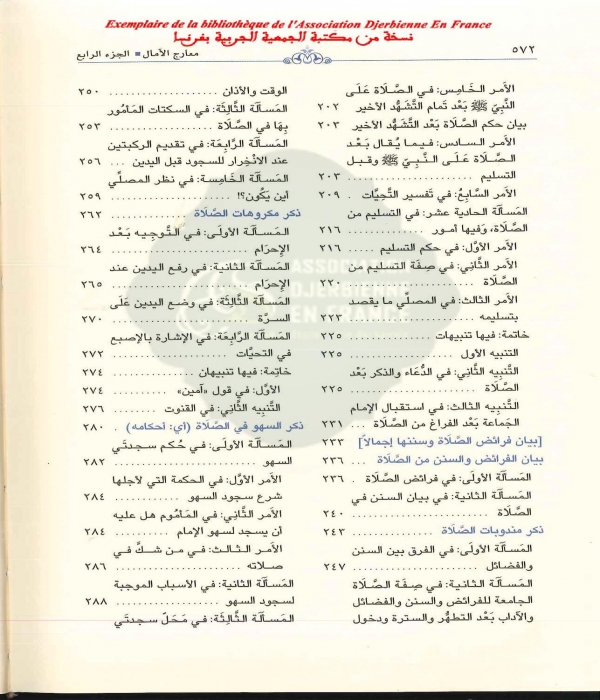 Exemplaire de la bibliothèque de l'Association Djerbienne En France
نسخة من مكتبة الجمعية الجربية بفرنسا
٥٧٢
معارج الآمال ■ الجزء الرابع
الأمر الخَامِس: في الصَّلاة عَلَى
النَّبِيّ ﷺ بَعْد تَمام التَّشَهُّد الأخير ٢٠٢
بيان حكم الصَّلاة بَعْد التَّشهُّد الأخير ٢٠٣
الأمر السادس: فيما يُقَال بَعْد
الصَّلاة عَلَى النَّبِيّ ﷺ وقبل
التسليم ................. ٢٠٣
الأمر السَّابِعُ: في تَفسير التَّحِيَّات . ٢٠٩
المَسألة الحادية عشر: في التسليم من
الصَّلاة، وَفيها أمـور ........ ٢١٦
الأمر الأوَّل: في حكم التسليم .... ٢١٦
الأمر الثَّاني: في صِفَة التسليم من
الصَّلاة ................. ٢٢٠
الأمر الثالث: في المصلِّي ما يقصد
بتسليمه ................. ٢٢٣
خاتمة: فيها تنبيهات .......... ٢٢٥
التنبيه الأول ................. ٢٢٥
التَّنبِيه الثَّانِي: في الدُّعَاء والذكر بَعْد
الصَّلاة ................. ٢٢٥
التَّنبِيه الثالث: في استقبال الإمام
الجَماعة بَعْد الفراغ من الصَّلاة ٢٣١
[بيان فرائض الصَّلاة وسننها إجمالاً] ٢٣٣
بيان الفَرائض والسنن من الصَّلاة ... ٢٣٦
المَسألة الأولى: في فرائض الصَّلاة . ٢٣٦
المَسألة الثانية: في بيان السنن في
الصَّلاة ................. ٢٤٠
ذكر مندوبات الصَّلاة .......... ٢٤٣
المَسألة الأولى: في الفرق بين السنن
والفضائل ................. ٢٤٧
المَسألة الثانية: في صِفَة الصَّلاة
الجامعة للفرائض والسنن والفضائل
والآداب بَعْد التطهُّر والسترة ودخول
الوقت والأذان ............. ٢٥٠
المَسألة الثَّالِثة: في السكتات المَأمُور
بِهَا في الصَّلاة ............. ٢٥٣
المَسألة الرَّابِعَة: في تقديم الركبتين
عند الانْحِدار للسجود قبل اليدين ... ٢٥٦
المَسألة الخَامِسة: في نظر المصلِّي
أين يَكُون؟! ............. ٢٥٩
ذكر مكروهات الصَّلاة .......... ٢٦٢
المَسألة الأولى: في التَّوجِيه بَعْد
الإحرَام ................. ٢٦٤
المَسألة الثانية: في رفع اليدين عند
الإحرَام ................. ٢٦٥
المَسألة الثَّالِثة: في وضع اليدين عَلَى
السرَّة ................. ٢٧٠
المَسألة الرَّابِعَة: في الإشارة بالإصبع
في التحيَّات ............. ٢٧٢
خاتِمة: فيها تنبيهان ............. ٢٧٤
الأوَّل: في قول «آمين» .......... ٢٧٤
التَّنبيه الثَّانِي: في القنوت ....... ٢٧٦
ذكر السهو في الصَّلاة (أي: أحكامه) . ٢٨٠
المَسألة الأولى: في حُكم سجدتَي
السهو ................. ٢٨٢
الأمر الأوَّل: في الحكمة التي لأجلها
شرع سجود السهو .......... ٢٨٤
الأمر الثَّانِي: في المَأمُوم هل عليه
أن يسجد لسهو الإمام ........ ٢٨٤
الأمر الـثـالـث: في مـن شـكَّ في
صلاته ................. ٢٨٦
المَسألة الثانية: في الأسباب الموجبة
لسجود السهو ............. ٢٨٨
المَسألة الثَّالِثة: في مَحَلّ سجدتَي
ASSOCIATION
DJERBIENNE
EN FRANCE